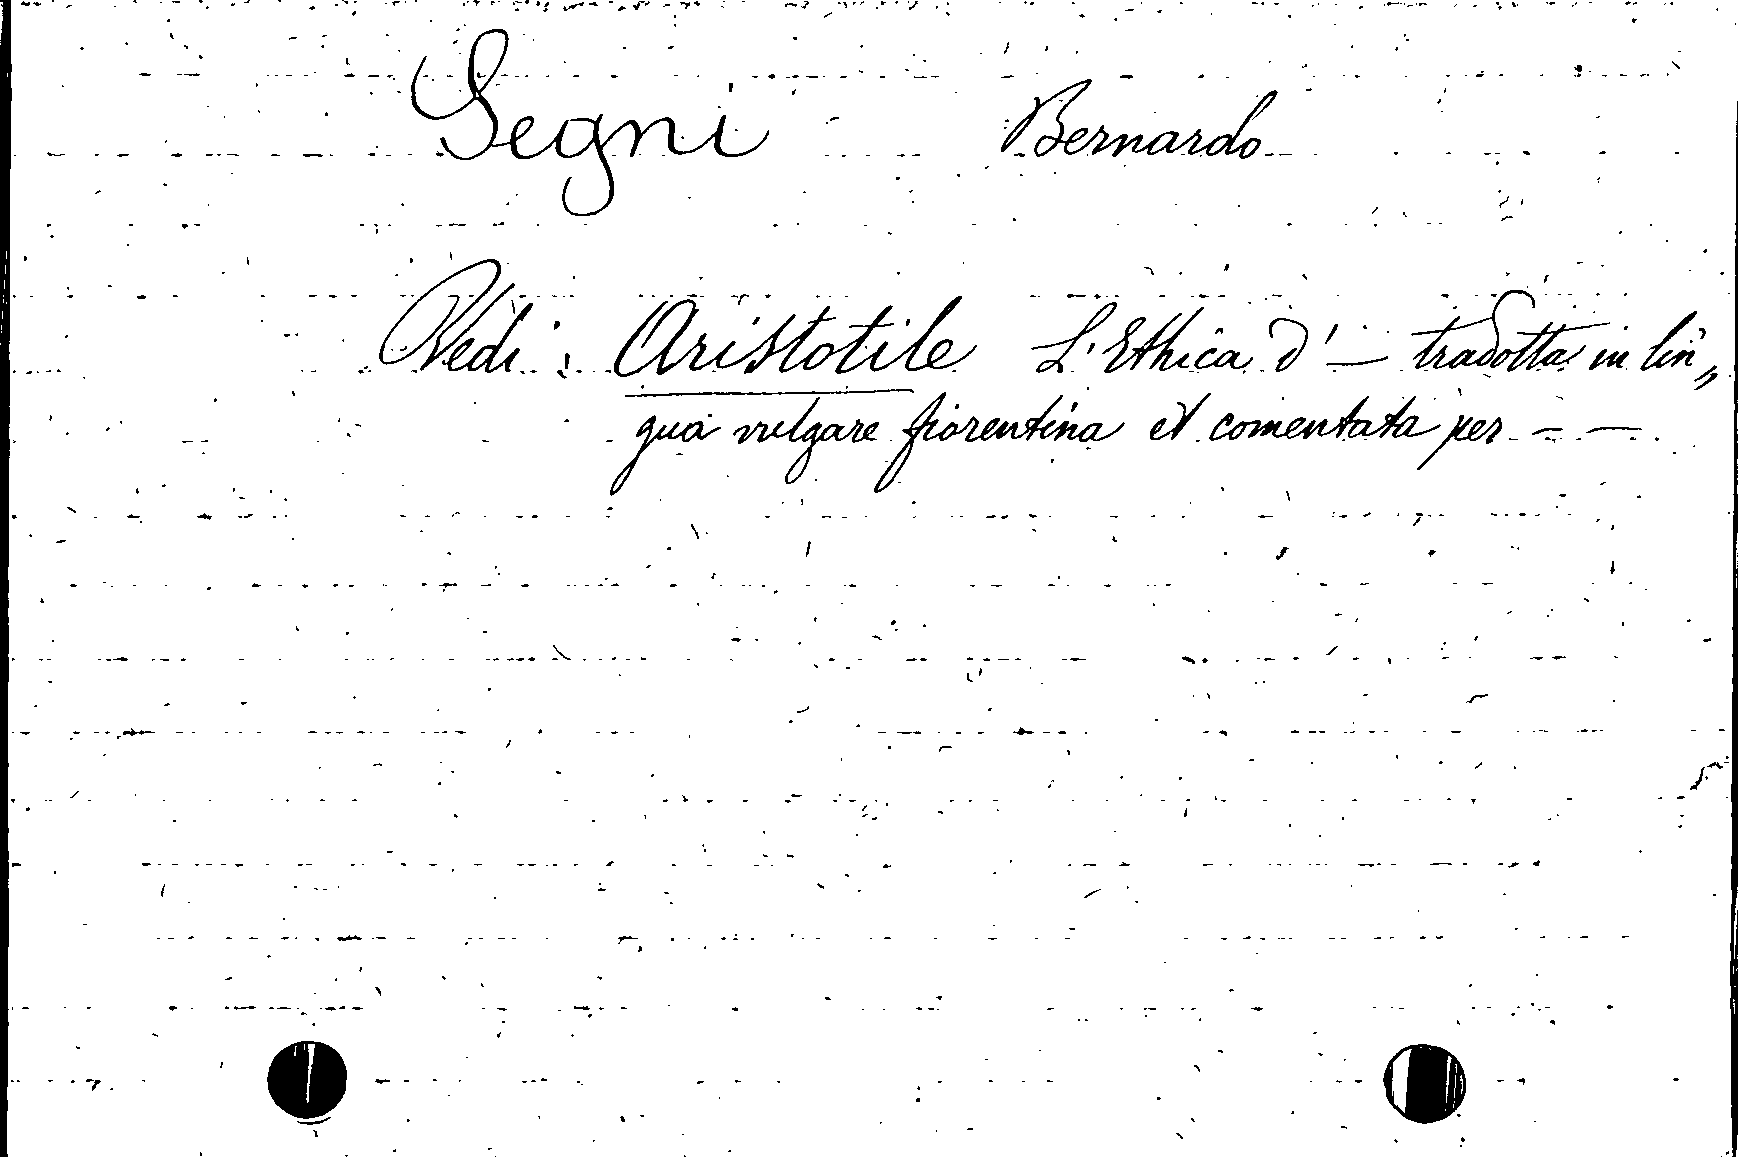 Segni Bernardo
Vedi: Aristotile L'Ethica d' — tradotta in lin„
gua vulgare fiorentina et comentata per – —